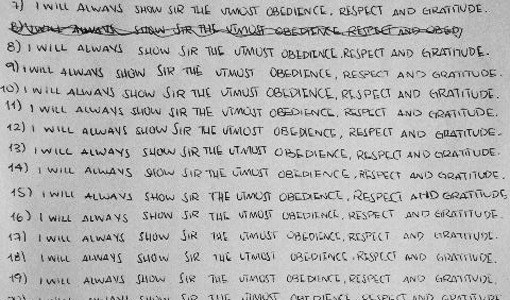 7) I WILL ALWAYS SHOW SIR THE UTMOST OBEDIENCE, RESPECT AND GRATITUDE.
8) I WILL ALWAYS SHOW SIR THE UTMOST OBEDIENCE, RESPECT AND OBED,
8) I WILL ALWAYS SHOW SIR THE UTMOST OBEDIENCE, RESPECT AND GRATITUDE.
9) I WILL ALWAYS SHOW SIR THE UTMOST OBEDIENCE, RESPECT AND GRATITUDE.
10) I WILL ALWAYS SHOW SIR THE UTMOST OBEDIENCE, RESPECT AND GRATITUDE.
11) I WILL ALWAYS SHOW SIR THE UTMOST OBEDIENCE, RESPECT AND GRATITUDE.
12) I WILL ALWAYS SHOW SIR THE UTMOST OBEDIENCE, RESPECT AND GRATITUDE.
13) I WILL ALWAYS SHOW SIR THE UTMOST OBEDIENCE, RESPECT AND GRATITUDE.
14) I WILL ALWAYS SHOW SIR THE UTMOST OBEDIENCE, RESPECT AND GRATITUDE.
15) I WILL ALWAYS SHOW SIR THE UTMOST OBEDIENCE, RESPECT AND GRATITUDE
16) I WILL ALWAYS SHOW SIR THE UTMOST OBEDIENCE, RESPECT AND GRATITUDE.
17) I WILL ALWAYS SHOW SIR THE UTMOST OBEDIENCE, RESPECT AND GRATITUDE.
18) I WILL ALWAYS SHOW SIR THE UTMOST OBEDIENCE, RESPECT AND GRATITUDE.
19) I WILL ALWAYS SHOW SIR THE UTMOST OBEDIENCE, RESPECT AND GRATITUDE.
20) I WILL ALWAYS SHOW SIR THE UTMOST OBEDIENCE, RESPECT AND GRATITUDE.